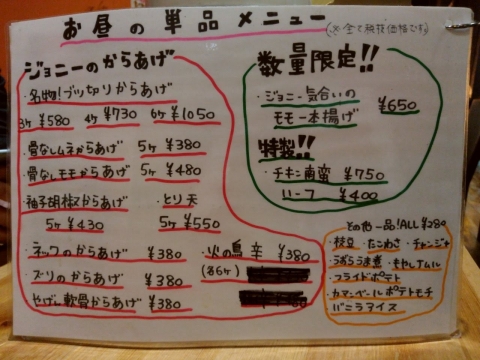 お昼の単品メニュー(※全て税抜価格です)
ジョニーのからあげ
・名物!ブッ切りからあげ
3ヶ¥580 4ヶ¥730 6ヶ¥1050
・骨なしムネからあげ 5ヶ ¥380
・骨なしモモからあげ 5ヶ ¥480
・柚子胡椒からあげ ・とり天
5ヶ¥430 5ヶ¥550
・ネックのからあげ ¥380 ・火の鳥 辛 ¥380
・ズリのからあげ ¥380 (各6ヶ)
・やげん軟骨からあげ ¥380
数量限定!!
・ジョニー気合いの
モモ一本揚げ ¥650
特製!!
・チキン南蛮 ¥750
ハーフ ¥400
その他一品!ALL¥280
・枝豆 ・たこわさ ・チャンジャ
・うずらうま煮 ・キャレームル
・フライドポテト
・カマンベールポテトモチ
・バニラアイス